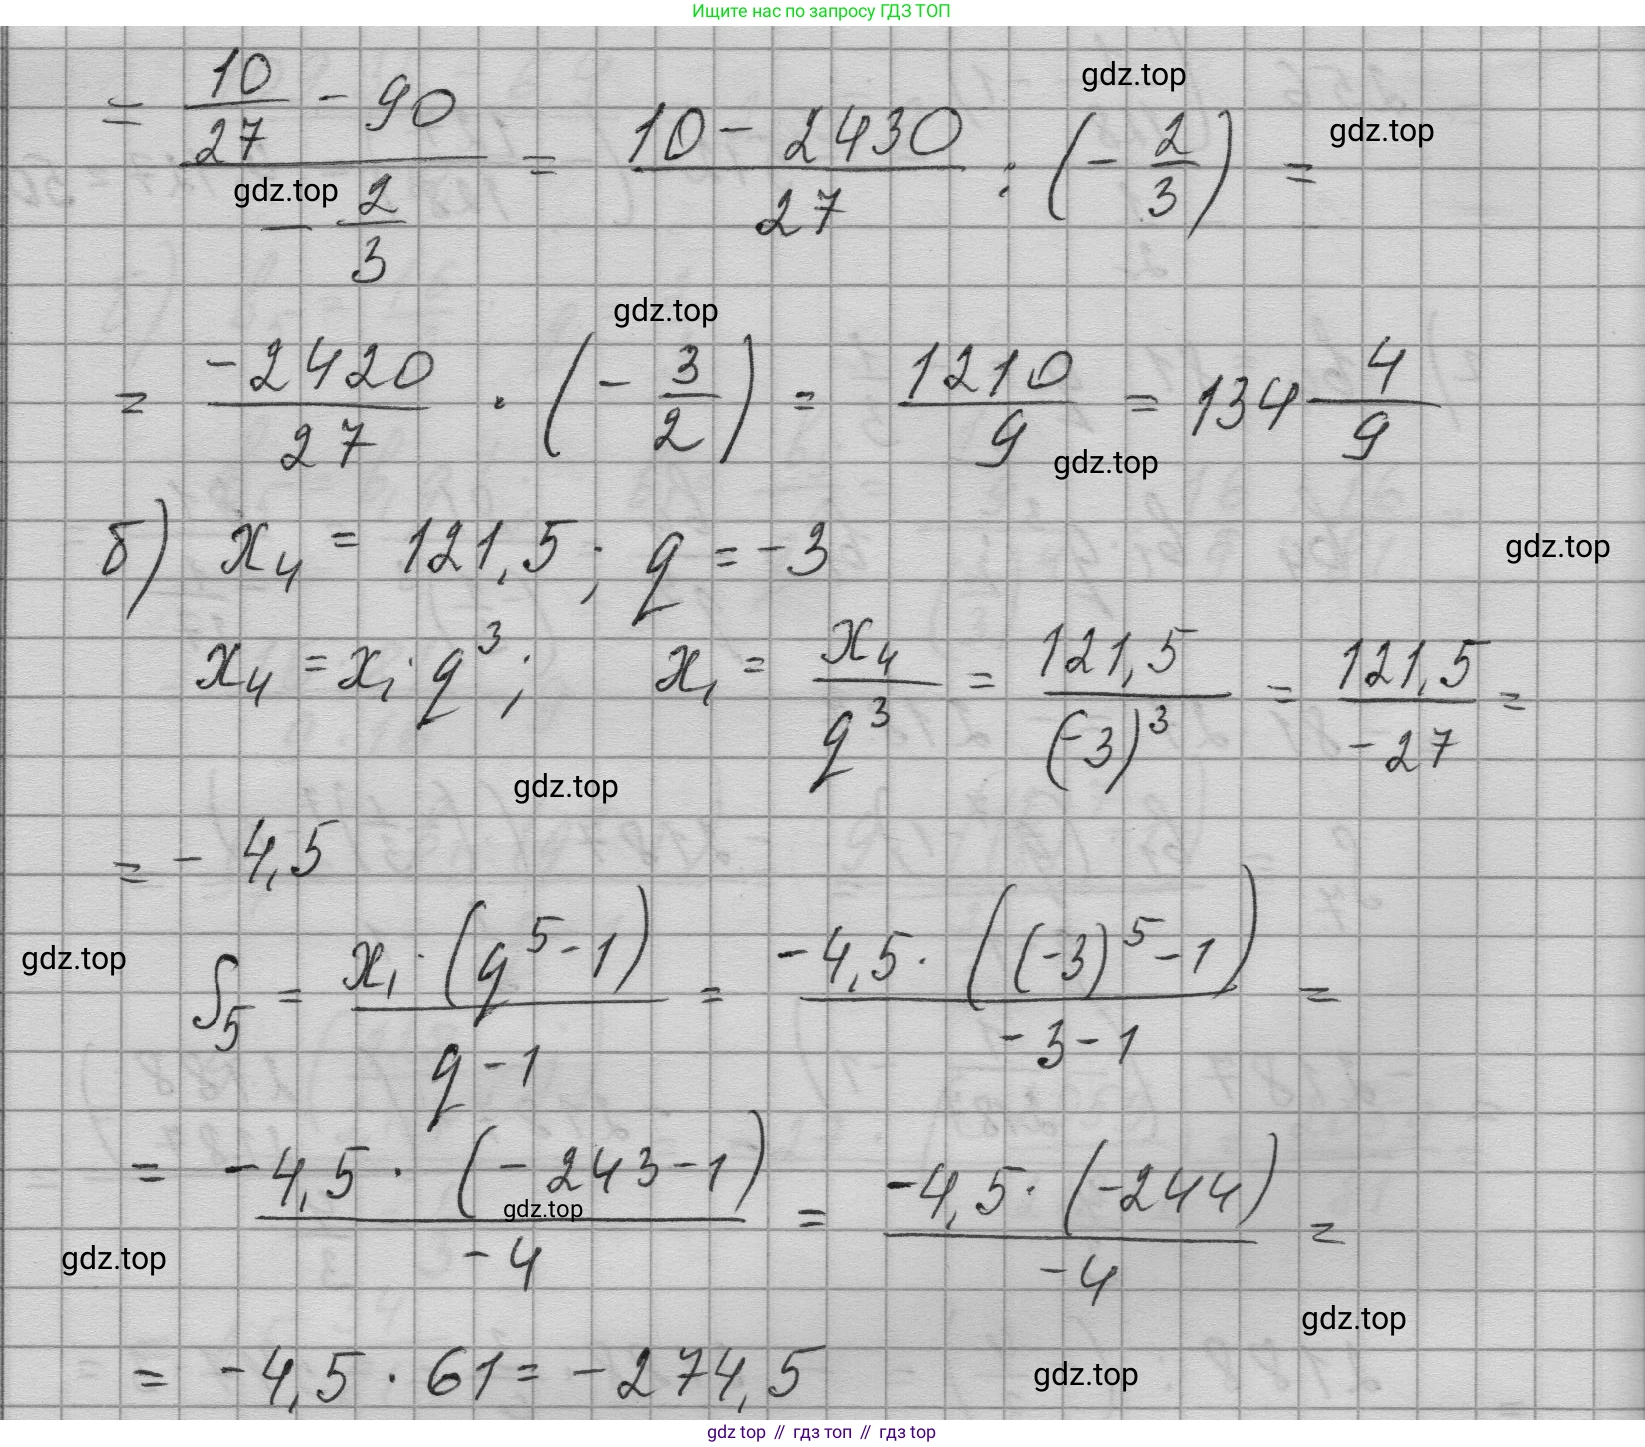 Ищите нас по запросу ГДЗ ТОП
gdz.top
= (10/27 - 90)/(- 2/3) = (10 - 2430)/27 : (- 2/3) =
gdz.top
gdz.top
gdz.top
= -2420/27 · (- 3/2) = 1210/9 = 134 4/9
gdz.top
б) x₄ = 121,5; q = -3
gdz.top
x₄ = x₁ · q³; x₁ = x₄/q³ = 121,5/(-3)³ = 121,5/-27 =
gdz.top
= - 4,5
gdz.top
S₅ = x₁ · (q⁵ - 1)/(q - 1) = -4,5 · ((-3)⁵ - 1)/(-3 - 1) =
= -4,5 · (-243 - 1)/-4 = -4,5 · (-244)/-4 =
gdz.top
gdz.top
gdz.top
= -4,5 · 61 = -274,5
gdz.top
gdz top // гдз топ // гдз top